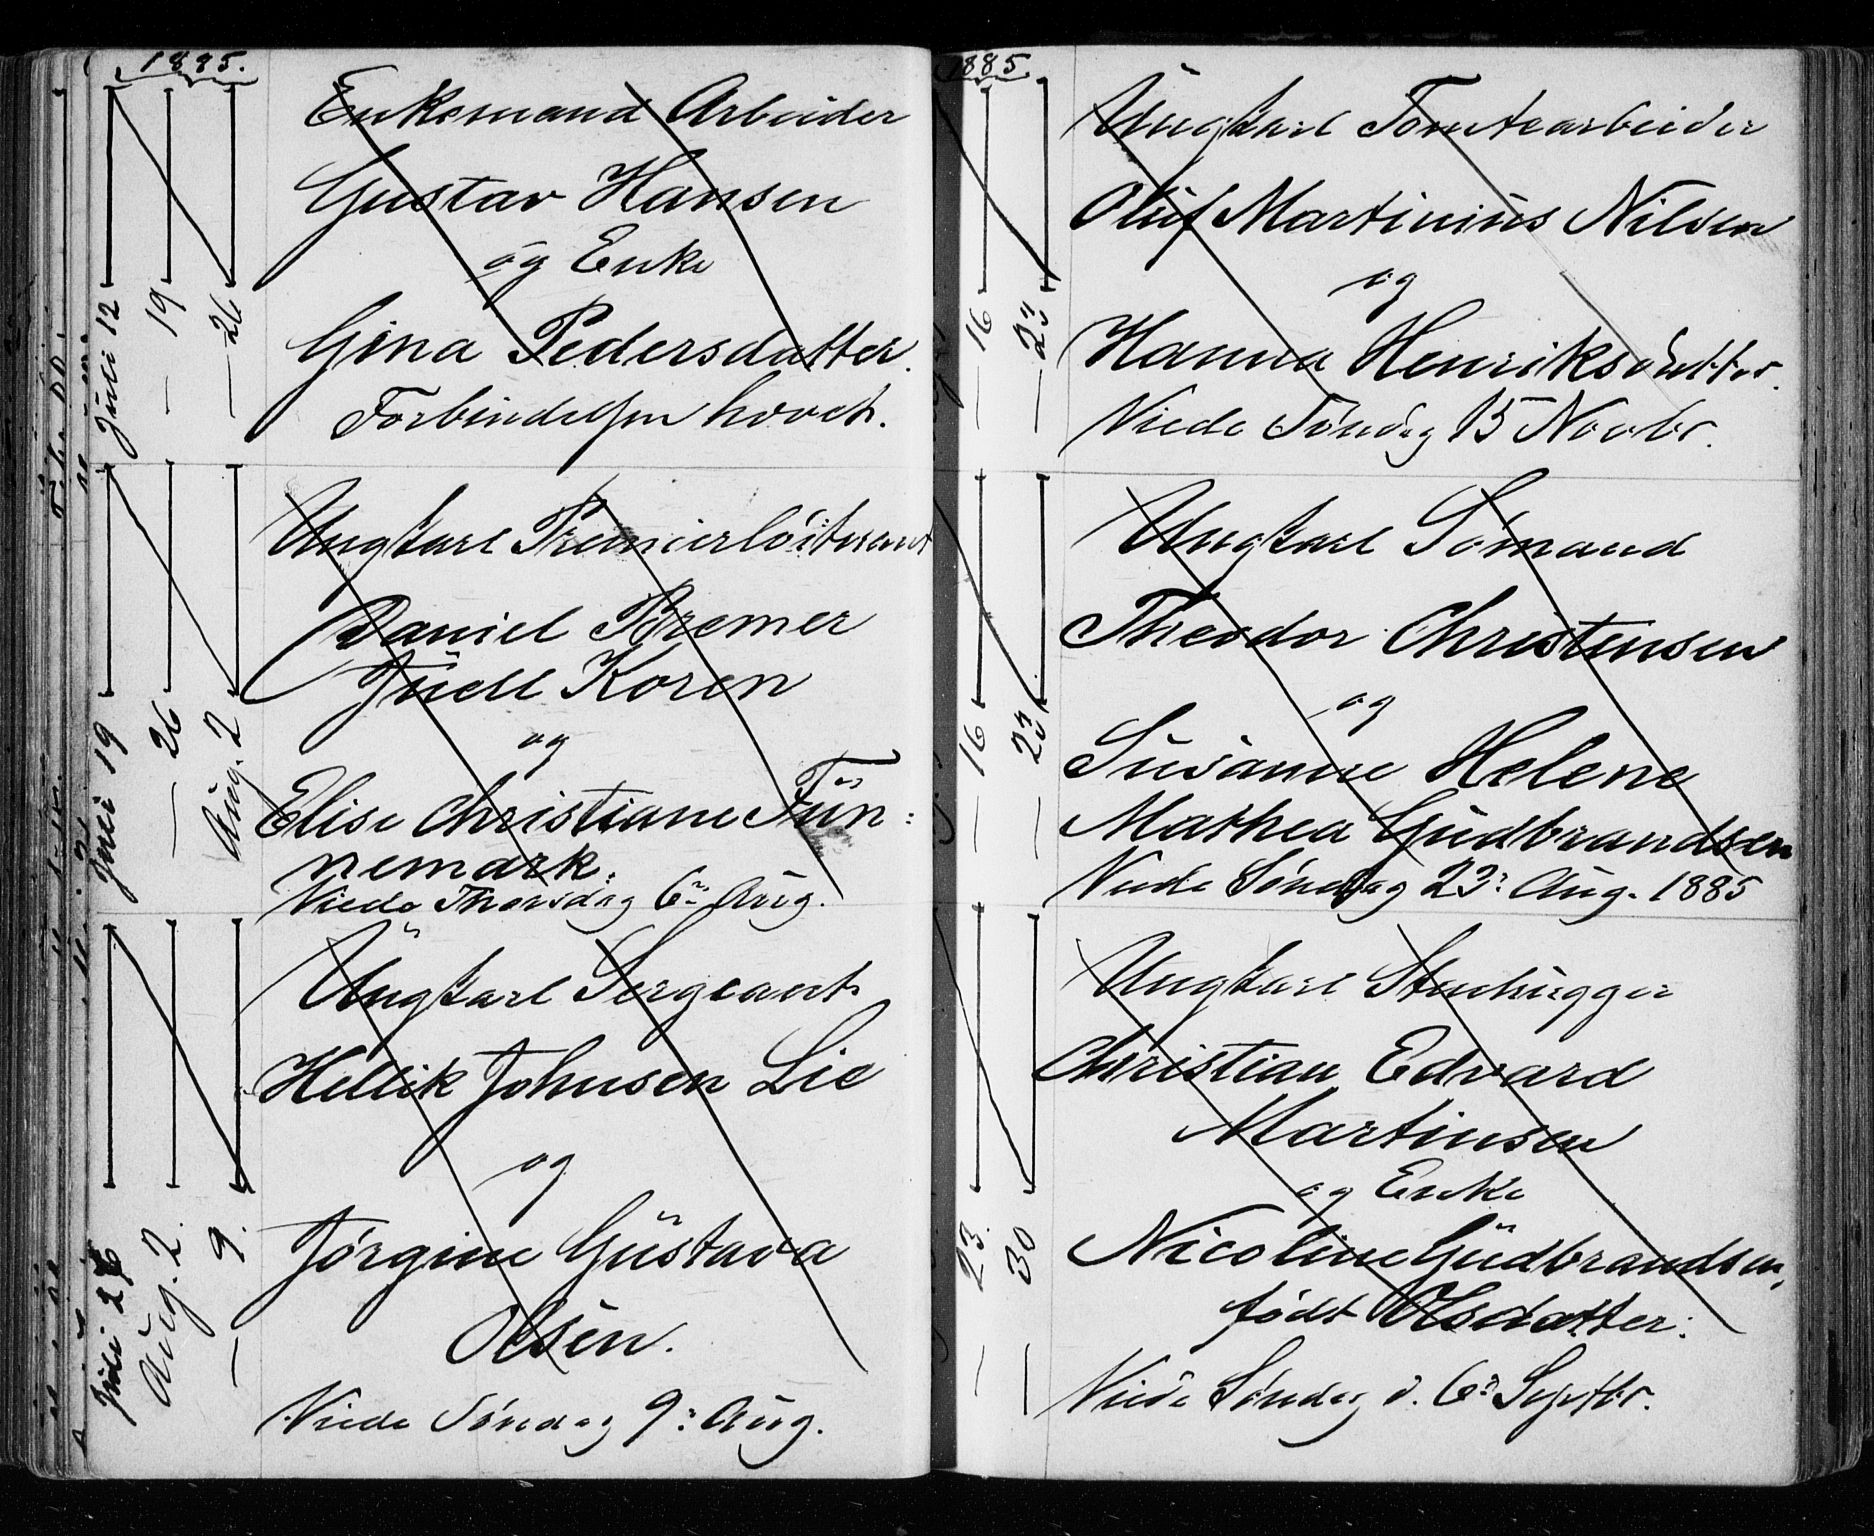 1885.
Juli 12 — 19 — 26
Enkemand Arbeider
Gustav Hansen
og Enke
Gina Pedersdatter.
Forbindelsen hævet.
Juli 19 — 26 Aug. 2
Ungkarl Premierlöitenant
Daniel Bremer
Jüell Koren
og
Elise Christiane Fün:
nemark.
Viede Thorsdag 6te Aug.
Juli 26 Aug. 2. — 9.
Ungkarl Sergeant
Hellik Johnsen Lie
og
Jørgine Güstava
Olsen.
Viede Søndag 9: Aug.
1885
— 16 — 23
Ungkarl Tomtearbeider
Oluf Martinius Nilsen
og
Hanna Henriksdatter.
Viede Søndag 15 Novbr.
— 16 — 23
Ungkarl Sømand
Theodor Christensen
og
Susanne Helene
Mathea Gudbrandsen
Viede Søndag 23: Aug. 1885
— 23. — 30
Ungkarl Stenhugger
Christian Edvard
Martinsen
og Enke
Nicoline Güdbrandsen,
født Olsdatter.
Viede Søndag d. 6te Septbr.